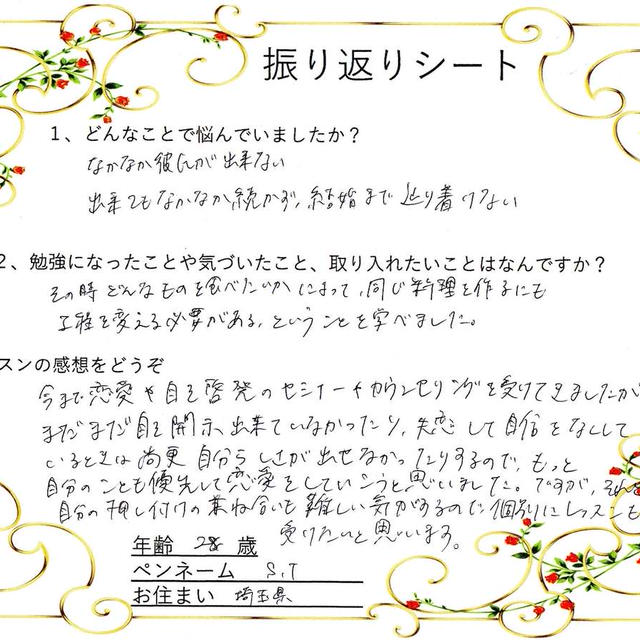 振り返りシート
1、どんなことで悩んでいましたか？
なかなか彼氏が出来ない
出来てもなかなか続かず、結婚まで辿り着けない
2、勉強になったことや気づいたこと、取り入れたいことはなんですか？
その時どんなものを食べたいかによって、同じ料理を作るにも
工程を変える必要がある、ということを学べました。
スンの感想をどうぞ
今まで恋愛や自己啓発のセミナーやカウンセリングを受けてきましたが
まだまだ自己開示出来ていなかったり、失恋して自信をなくして
いるときは尚更自分らしさが出せなかったりするので、もっと
自分のことも優先して恋愛をしていこうと思いました。ですが、それ
自分の押し付けの兼ね合いも難しい気がするので個別にレッスンも
受けたいと思います。
年齢 28 歳
ペンネーム S.T
お住まい 埼玉県